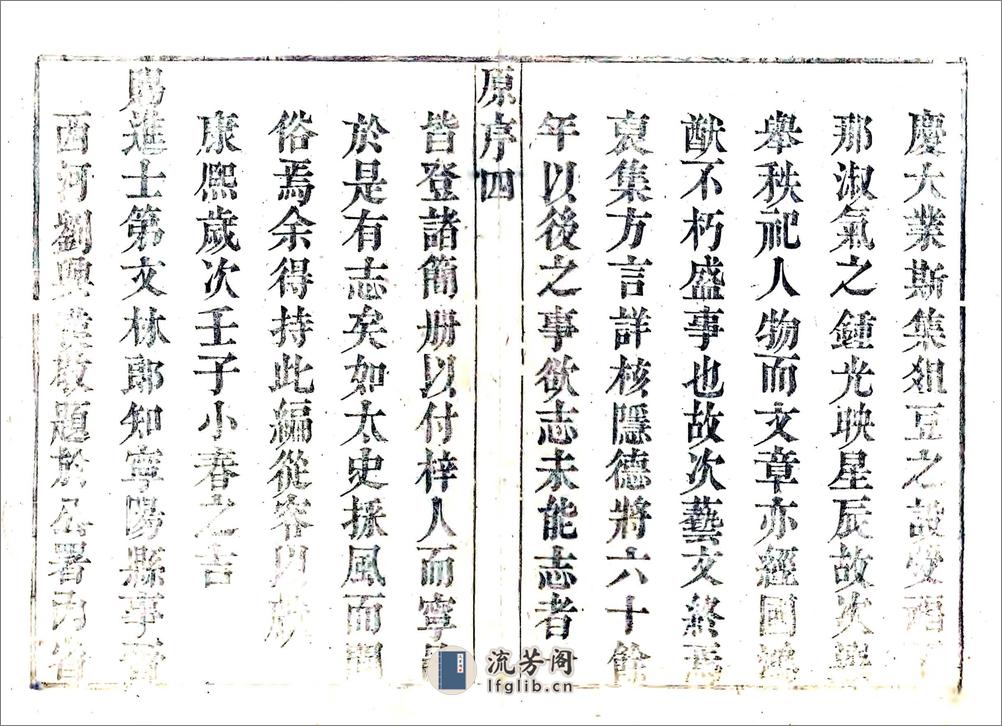 慶大業斯集俎豆之設受福
那淑氣之鍾光映星辰故次選
舉秩祀人物而文章亦經國
猷不朽盛事也故次藝文終焉
裒集方言詳核隱德將六十餘
年以後之事欲志未能志者
原序四
皆登諸簡册以付梓人而寧
於是有志矣如太史採風而問
俗焉余得持此編從容以
康熙歲次壬子小春之吉
賜進士第文林郎知寧陽縣事
西河劉興漢敬題於公署
流芳阁
lfglib.cn